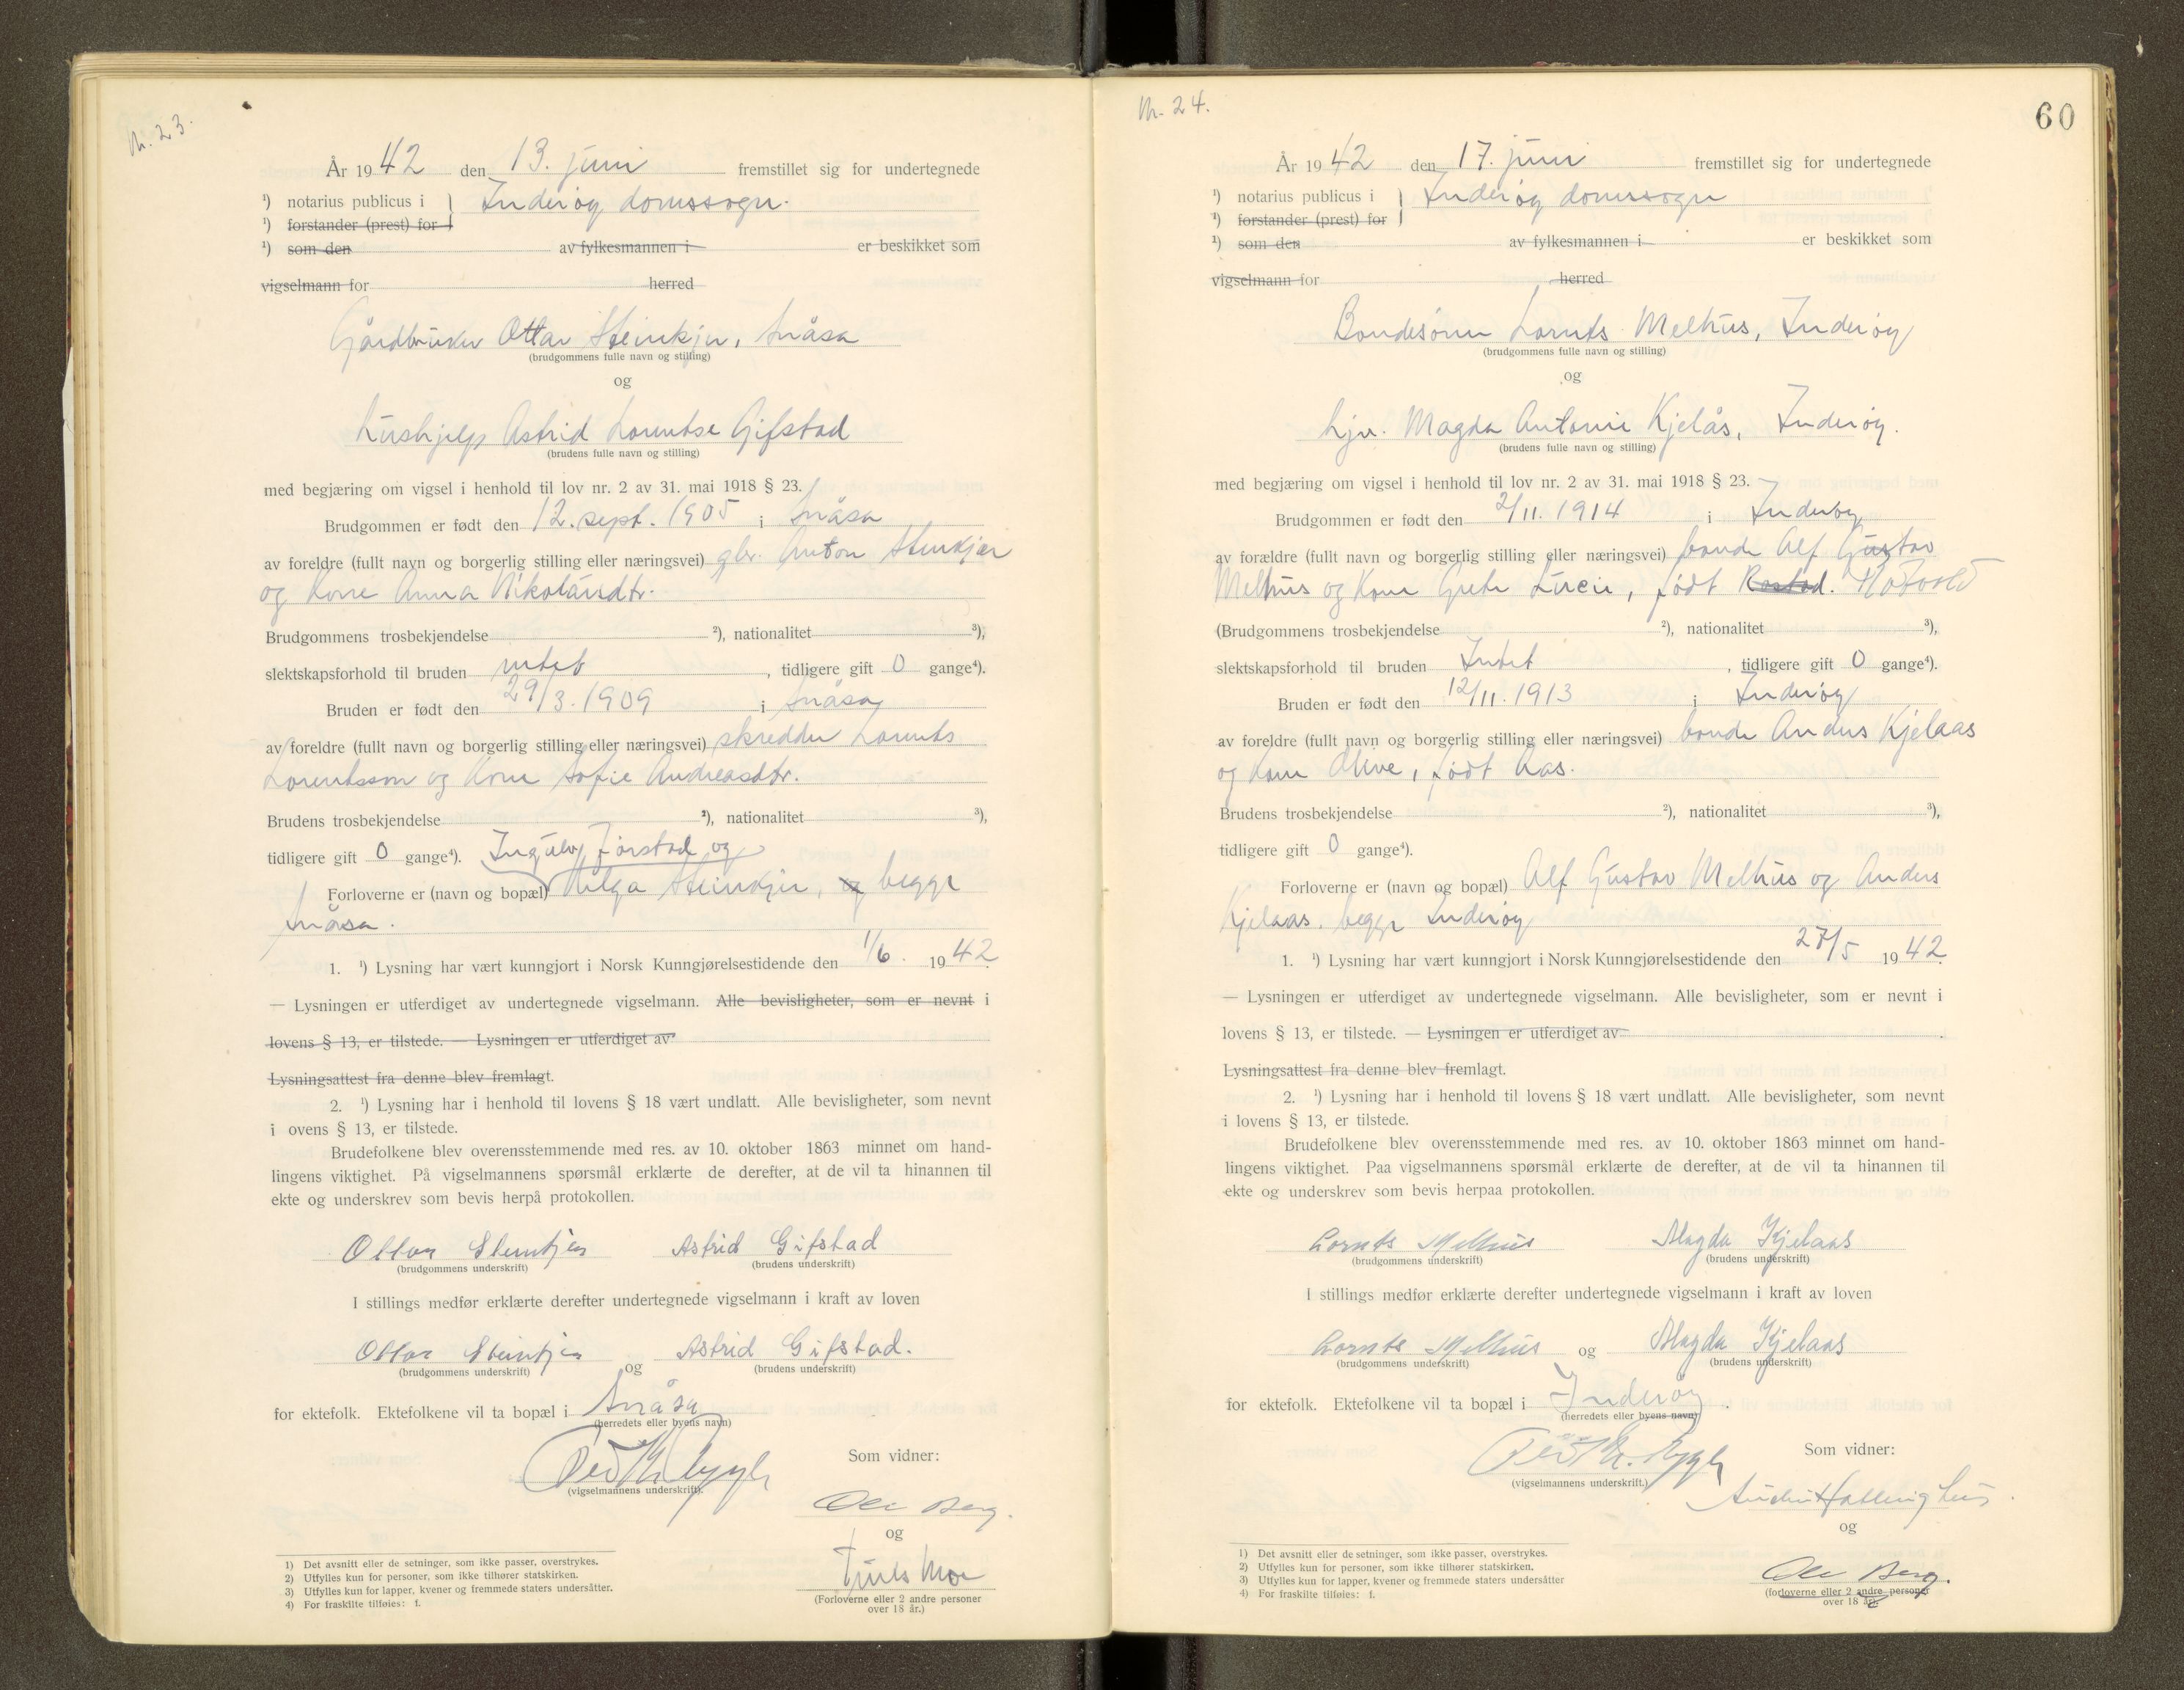 Nr. 23.
År 1942 den 13. juni fremstillet sig for undertegnede
¹) notarius publicus i } Inderøy domssogn.
¹) forstander (prest) for
¹) som den av fylkesmannen i er beskikket som
vigselmann for herred
Gårdbruker Ottar Steinkjer, Snåsa
(brudgommens fulle navn og stilling)
og
hushjelp Astrid Lorentse Gifstad
(brudens fulle navn og stilling)
med begjæring om vigsel i henhold til lov nr. 2 av 31. mai 1918 § 23.
Brudgommen er født den 12. sept. 1905 i Snåsa
av foreldre (fullt navn og borgerlig stilling eller næringsvei) gbr. Anton Steinkjer
og kone Anna Nikolaisdtr.
Brudgommens trosbekjendelse ²), nationalitet ³),
slektskapsforhold til bruden intet, tidligere gift 0 gange⁴).
Bruden er født den 29/3. 1909 i Snåsa
av foreldre (fullt navn og borgerlig stilling eller næringsvei) skredder Lorents
Lorentsson og kone Sofie Andreasdtr.
Brudens trosbekjendelse ²), nationalitet ³),
tidligere gift 0 gange⁴). Ingulv Jørstad og
Forloverne er (navn og bopæl) Helga Steinkjer, og begge
Snåsa.
1. ¹) Lysning har vært kunngjort i Norsk Kunngjørelsestidende den 1/6. 1942.
— Lysningen er utferdiget av undertegnede vigselmann. Alle bevisligheter, som er nevnt i
lovens § 13, er tilstede. — Lysningen er utferdiget av
Lysningsattest fra denne blev fremlagt.
2. ¹) Lysning har i henhold til lovens § 18 vært undlatt. Alle bevisligheter, som nevnt
i ovens § 13, er tilstede.
Brudefolkene blev overensstemmende med res. av 10. oktober 1863 minnet om hand-
lingens viktighet. På vigselmannens spørsmål erklærte de derefter, at de vil ta hinannen til
ekte og underskrev som bevis herpå protokollen.
Ottar Steinkjer Astrid Gifstad
(brudgommens underskrift) (brudens underskrift)
I stillings medfør erklærte derefter undertegnede vigselmann i kraft av loven
Ottar Steinkjer og Astrid Gifstad.
(brudgommens underskrift) (brudens underskrift)
for ektefolk. Ektefolkene vil ta bopæl i Snåsa
(herredets eller byens navn)
Som vidner:
(vigselmannens underskrift).
Ole Berg.
og
Moe
(Forloverne eller 2 andre personer
over 18 år.)
1) Det avsnitt eller de setninger, som ikke passer, overstrykes.
2) Utfylles kun for personer, som ikke tilhører statskirken.
3) Utfylles kun for lapper, kvener og fremmede staters undersåtter.
4) For fraskilte tilføies: f.
Nr. 24.
60
År 1942 den 17. juni fremstillet sig for undertegnede
¹) notarius publicus i } Inderøy domssogn
¹) forstander (prest) for
¹) som den av fylkesmannen i er beskikket som
vigselmann for herred
Bondesønn Lornts Melhus, Inderøy
(brudgommens fulle navn og stilling)
og
hjv. Magda Antonie Kjelås, Inderøy.
(brudens fulle navn og stilling)
med begjæring om vigsel i henhold til lov nr. 2 av 31. mai 1918 § 23.
Brudgommen er født den 2/11. 1914 i Inderøy
av forældre (fullt navn og borgerlig stilling eller næringsvei) bonde Alf Gustav
Melhus og kone Grete Lucie, født Rostad.
(Brudgommens trosbekjendelse ²), nationalitet ³),
slektskapsforhold til bruden Intet, tidligere gift 0 gange⁴).
Bruden er født den 12/11. 1913 i Inderøy
av foreldre (fullt navn og borgerlig stilling eller næringsvei) bonde Anders Kjelaas
og kone Olive, født Aas.
Brudens trosbekjendelse ²), nationalitet ³),
tidligere gift 0 gange⁴).
Forloverne er (navn og bopæl) Alf Gustav Melhus og Anders
Kjelaas, begge Inderøy
1. ¹) Lysning har vært kunngjort i Norsk Kunngjørelsestidende den 27/5 1942.
— Lysningen er utferdiget av undertegnede vigselmann. Alle bevisligheter, som er nevnt i
lovens § 13, er tilstede. — Lysningen er utferdiget av
Lysningsattest fra denne blev fremlagt.
2. ¹) Lysning har i henhold til lovens § 18 vært undlatt. Alle bevisligheter, som nevnt
i lovens § 13, er tilstede.
Brudefolkene blev overensstemmende med res. av 10. oktober 1863 minnet om hand-
lingens viktighet. Paa vigselmannens spørsmål erklærte de derefter, at de vil ta hinannen til
ekte og underskrev som bevis herpaa protokollen.
Lornts Melhus Magda Kjelaas
(brudgommens underskrift) (brudens underskrift)
I stillings medfør erklærte derefter undertegnede vigselmann i kraft av loven
Lornts Melhus og Magda Kjelaas
(brudgommens underskrift) (brudens underskrift)
for ektefolk. Ektefolkene vil ta bopæl i Inderøy.
(herredets eller byens navn)
Som vidner:
(vigselmannens underskrift.)
og
Ole Berg.
(forloverne eller 2 andre personer
over 18 år).
1) Det avsnitt eller de setninger, som ikke passer, overstrykes.
2) Utfylles kun for personer, som ikke tilhører statskirken.
3) Utfylles kun for lapper, kvener og fremmede staters undersåtter
4) For fraskilte tilføies: f.